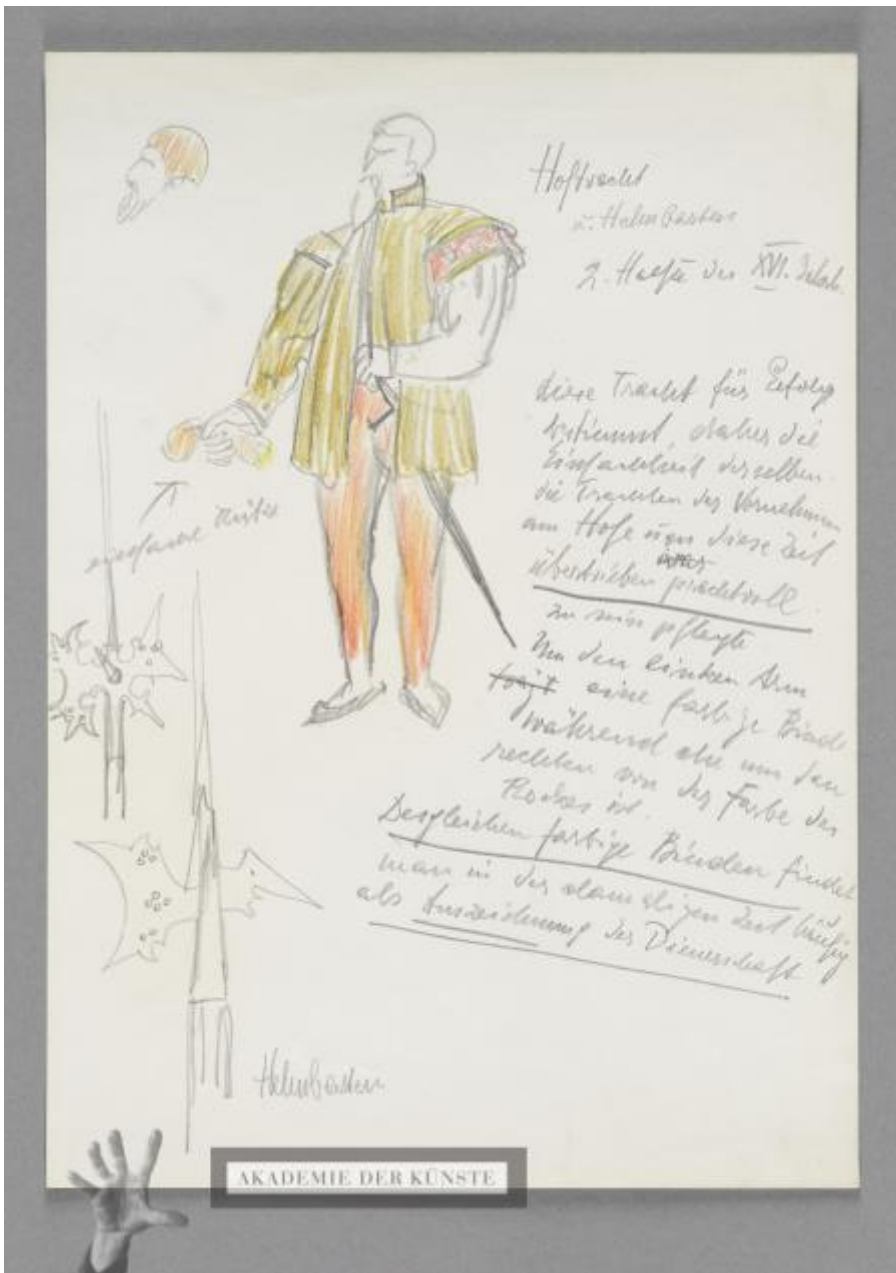 Hoftracht
u. Helmbarten
2. Haelfte des XVI. Jahrh.
diese Tracht für Gefolg
bestimmt, daher die
Einfachheit derselben.
die Trachten der Vornehmen
am Hofe um diese Zeit
übertrieben prachtvoll
zu sein pflegte
Um den linken Arm
trägt eine farbige Binde
während die um den
rechten von der Farbe des
Rockes ist.
Desgleichen farbige Binden findet
man in der damaligen Zeit häufig
als Auszeichnung der Dienerschaft
einfache Mütze
Helmbarten
AKADEMIE DER KÜNSTE